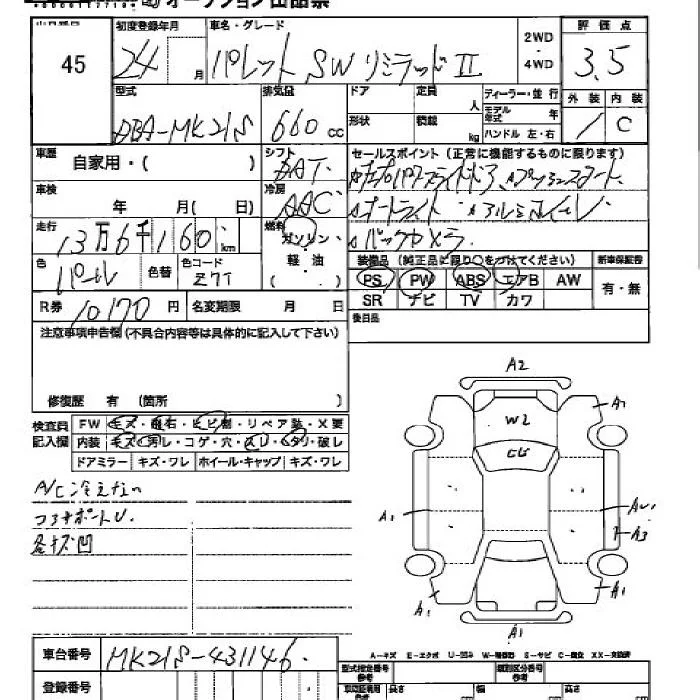 オークション出品票
45
初度登録年月 24年 月
車名・グレード パレット SW リミテッドII
2WD・4WD
評価点 3.5
外装 / 内装 C
型式 DBA-MK21S
排気量 660 cc
ドア 形状
定員 人
積載 kg
ディーラー・並行
モデル年式 年
ハンドル 左・右
車歴 自家用・( )
シフト
冷房 AAC
セールスポイント (正常に機能するものに限ります)
オートライト アルミホイール
バックカメラ
車検 年 月( 日)
走行 13万6千160 km
燃料 ガソリン・軽・油 ( )
色 パール 色替 色コード Z7T
装備品 (純正品に限り○をつけてください) 新車保証書
PS PW ABS エアB AW
SR ナビ TV カワ
有・無
R券 10170 円 名変期限 月 日
後日品
注意事項申告欄 (不具合内容等は具体的に記入して下さい)
修復歴 有 (箇所 )
検査員記入欄
FW キズ・飛石・ヒビ割・リペア跡・X要
内装 キズ・汚レ・コゲ・穴・スレ・ヘタリ・破レ
ドアミラー キズ・ワレ ホイール・キャップ キズ・ワレ
A/C冷えない
各キズ凹
A2
A1
W2
A1
A3
A1
A1
A1
A-キズ E-エクボ U-凹み W-補修跡 S-サビ C-腐食 XX-交換済
車台番号 MK21S-431146
登録番号
型式指定番号 参考
類別区分番号 参考
長さ cm 幅 cm 高さ cm